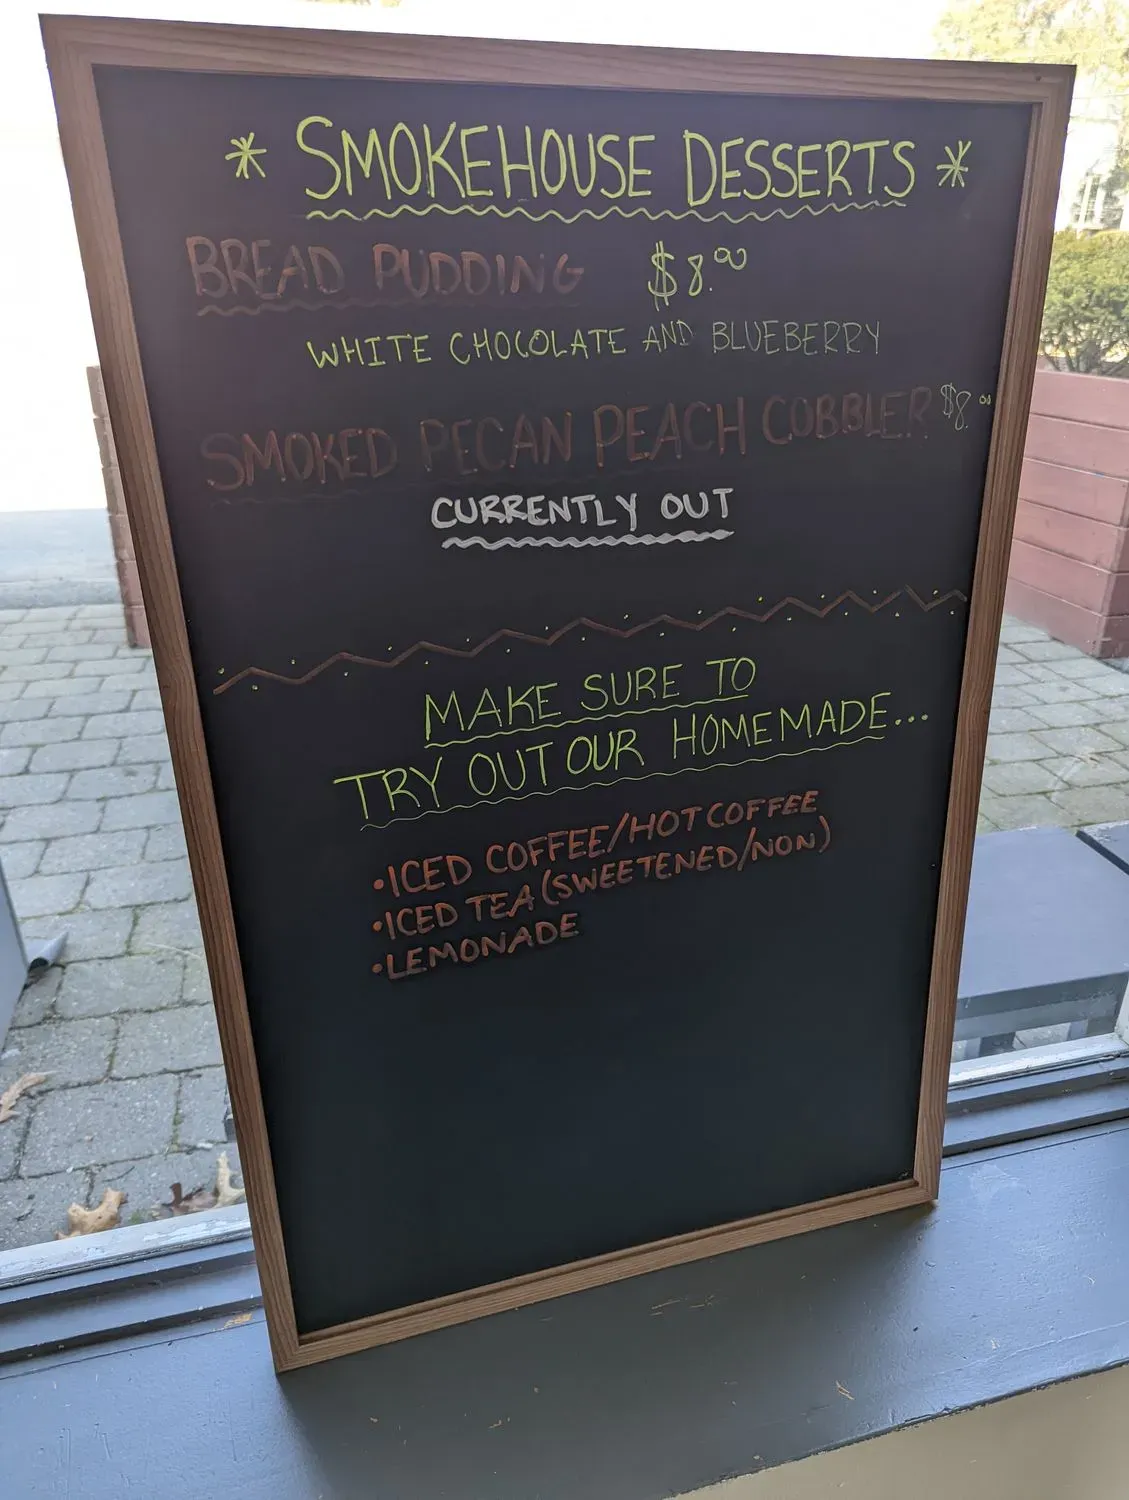 * SMOKEHOUSE DESSERTS *
BREAD PUDDING $8.00
WHITE CHOCOLATE AND BLUEBERRY
SMOKED PECAN PEACH COBBLER $8.00
CURRENTLY OUT
MAKE SURE TO
TRY OUT OUR HOMEMADE...
•ICED COFFEE/HOT COFFEE
•ICED TEA (SWEETENED/NON)
•LEMONADE